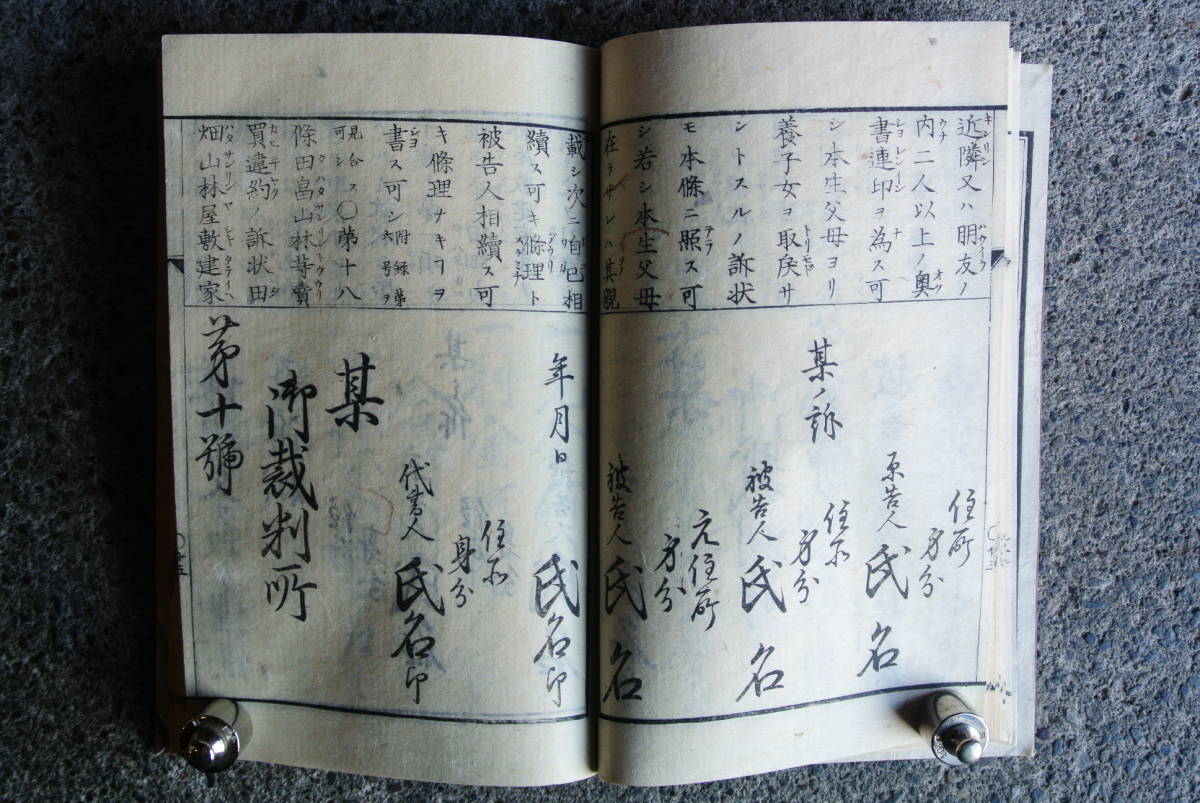 近隣又ハ朋友ノ
内二人以上ノ奥
書連印ヲ為ス可
シ本生父母ヨリ
養子女ヲ取戾サ
ントスルノ訴状
モ本條ニ照ス可
シ若シ本生父母
在ラサレハ其親
載シ次ニ自已相
續ス可キ條理ト
被告人相續ス可
キ條理ナキヿヲ
書ス可シ附録第六号ヲ
見合ス可シ〇第十八
條田畠山林等賣
買違約ノ訴状田
畑山林屋敷建家
住所
身分
原告人 氏名
某ノ訴
住所
身分
被告人 氏名
元住所
身分
被告人 氏名
年月日
氏名印
住所
身分
代書人 氏名印
某
御裁判所
第十號